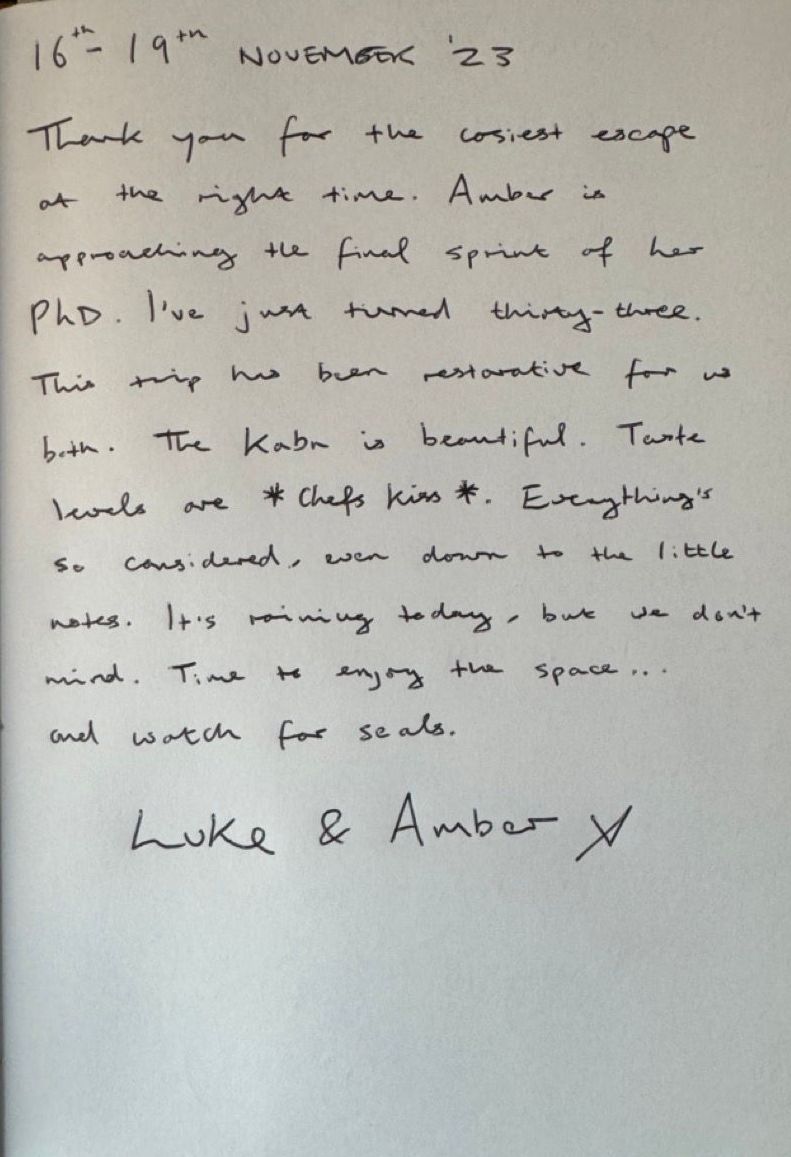 16th - 19th NOVEMBER '23
Thank you for the cosiest escape
at the right time. Amber is
approaching the final sprint of her
PhD. I've just turned thirty-three.
This trip has been restorative for us
both. The Kabn is beautiful. Taste
levels are * Chefs kiss *. Everything's
so considered, even down to the little
notes. It's raining today, but we don't
mind. Time to enjoy the space...
and watch for seals.
Luke & Amber X